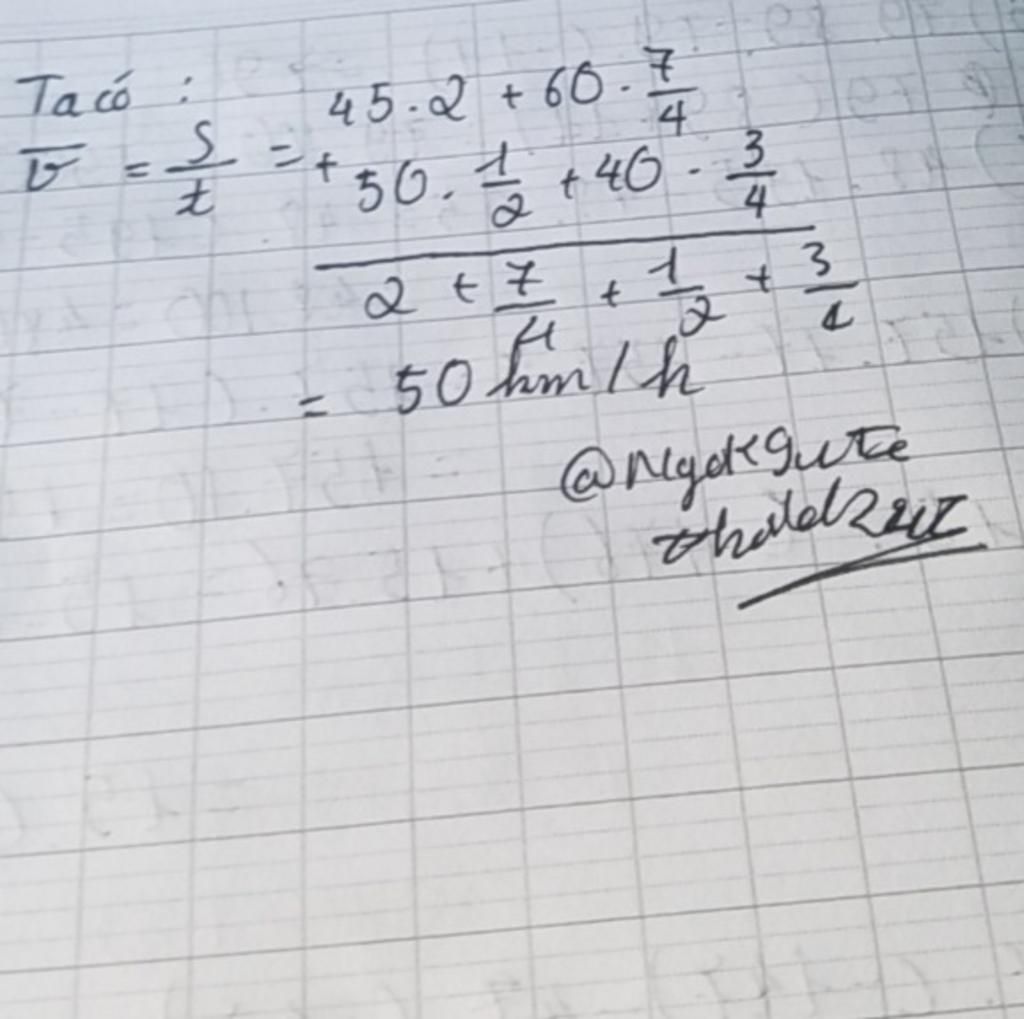 Ta có :
v̅ = S/t = 45.2 + 60 . 7/4
+ 50 . 1/2 + 40 . 3/4
2 + 7/4 + 1/2 + 3/4
= 50 km/h